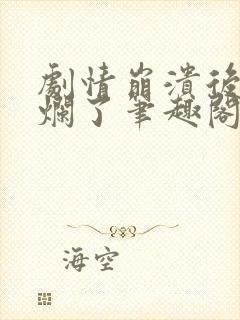 劇情崩潰後
爛了筆趣閣
海空